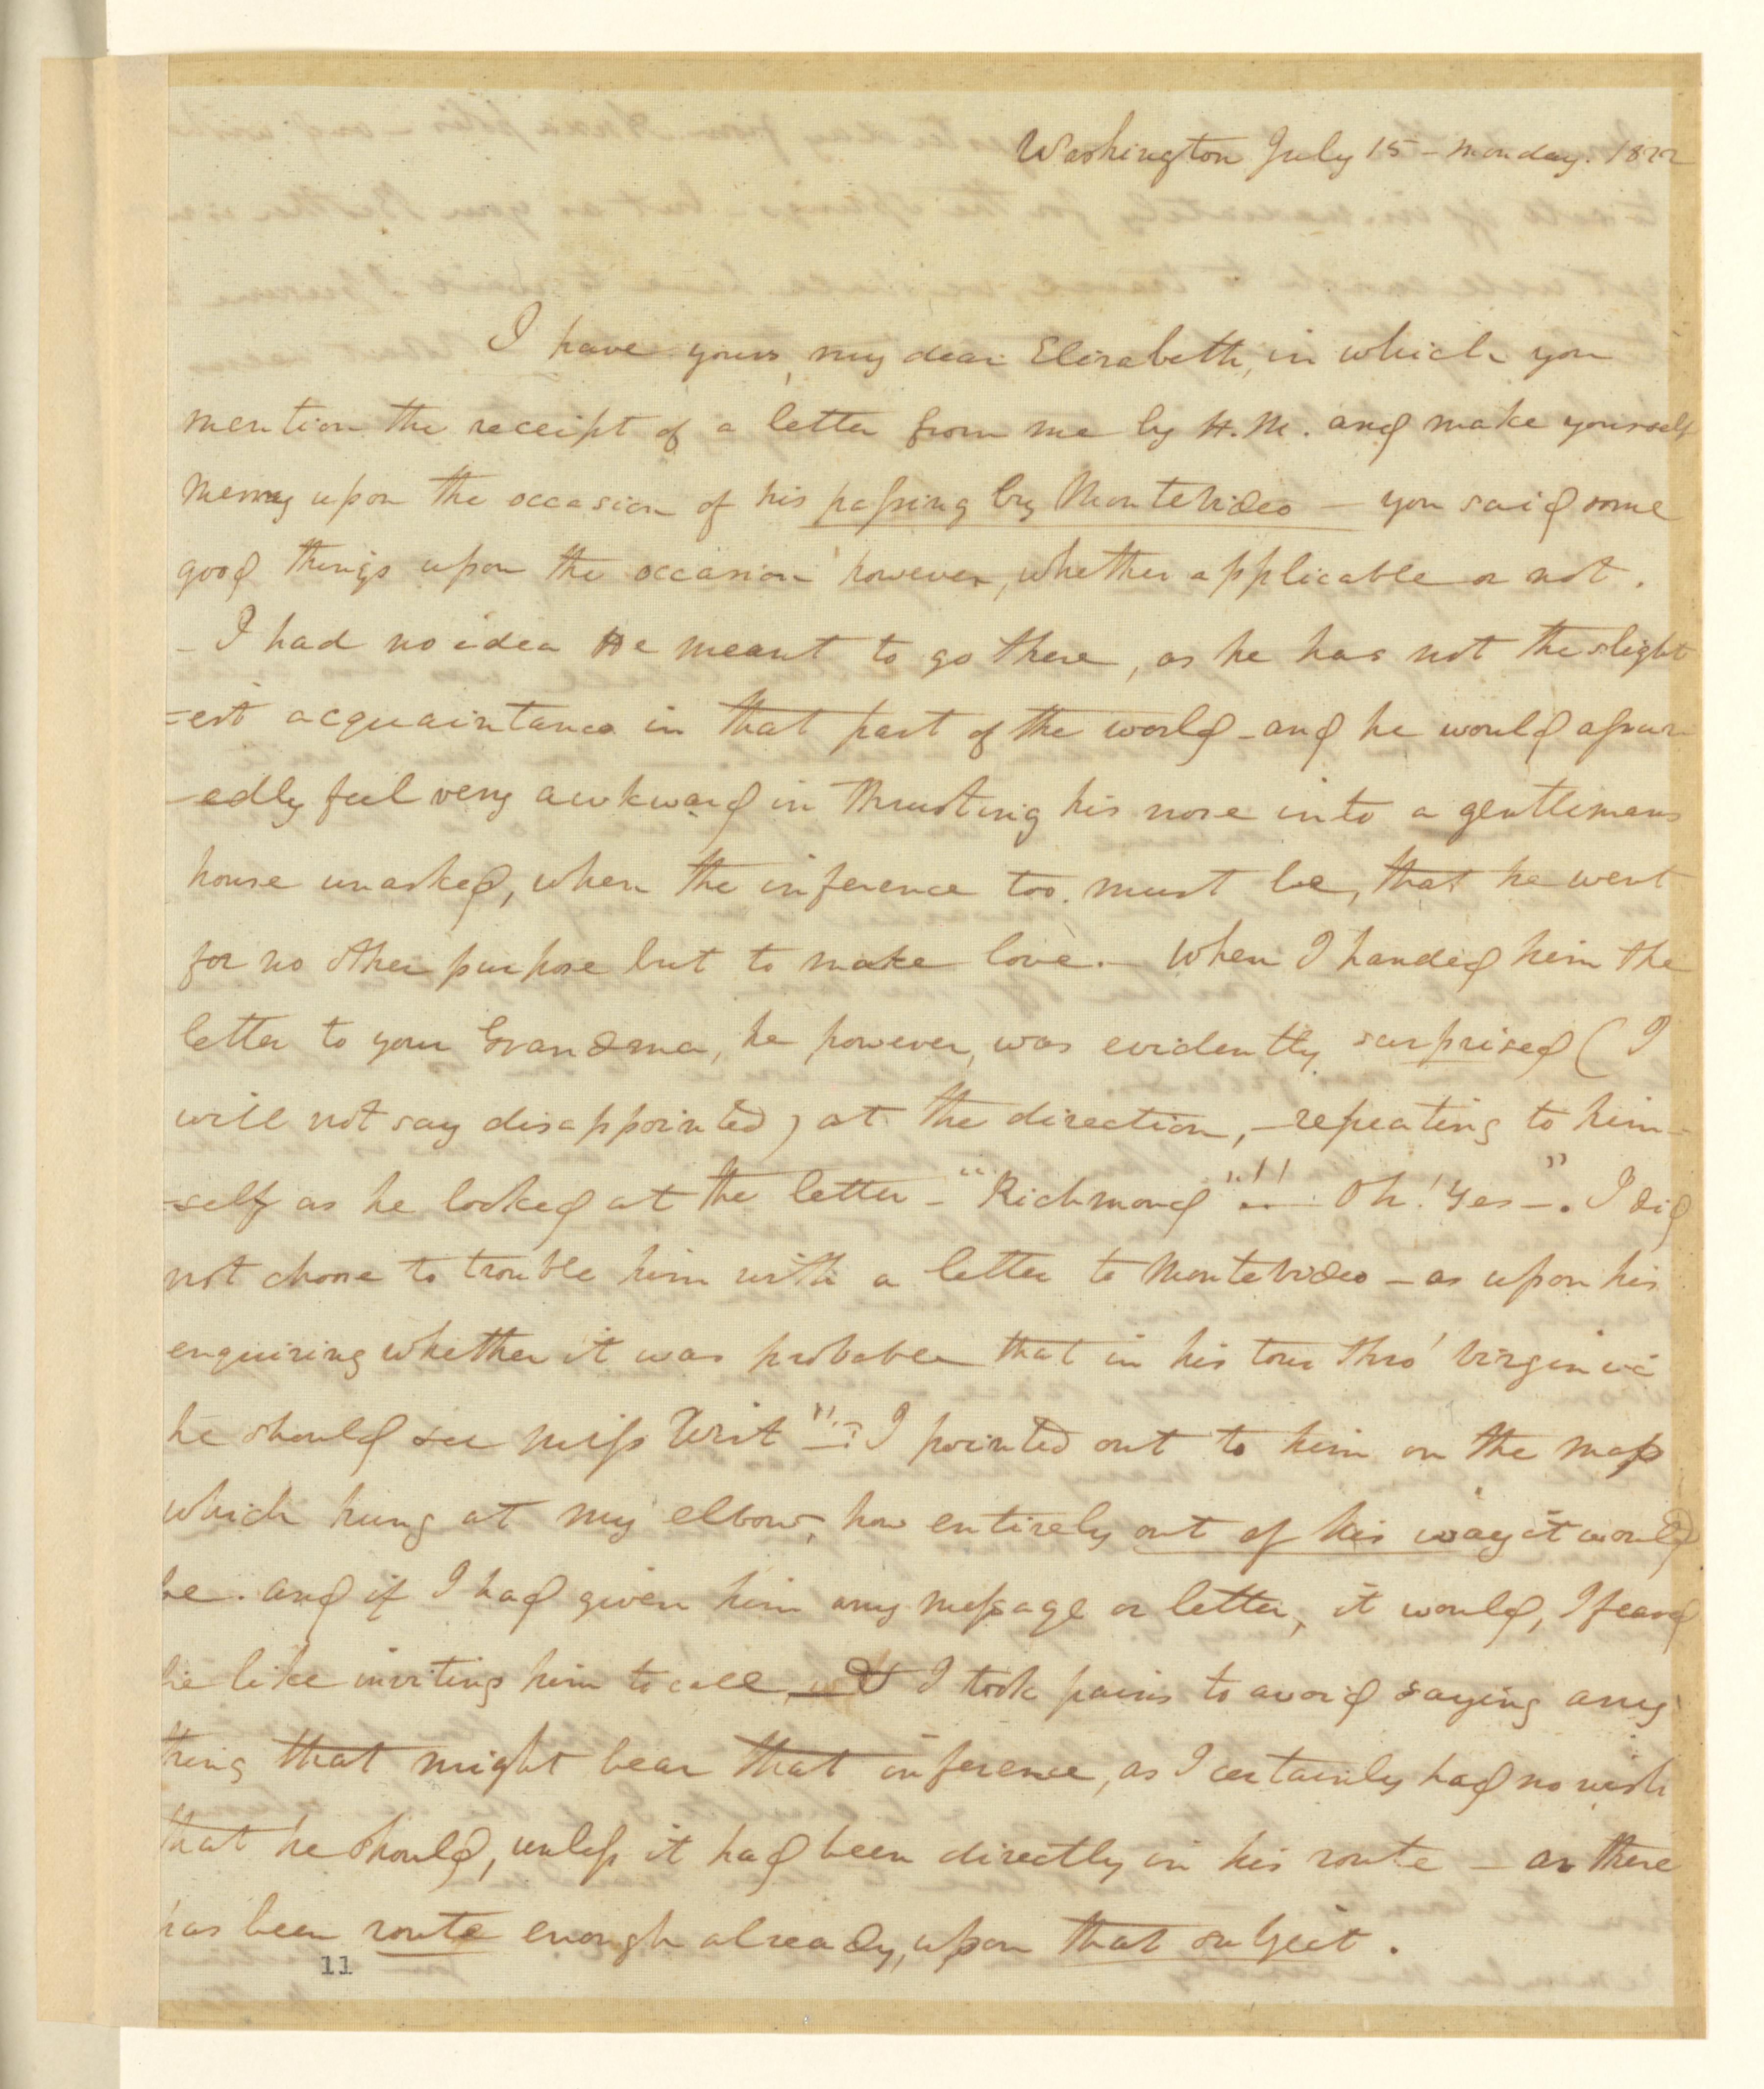 Washington July 15 - Monday. 1822
I have yours, my dear Elizabeth, in which you
mention the receipt of a letter from me by H.M. and make yourself
merry upon the occasion of his passing by Montevideo — you said some
good things upon the occasion however, whether applicable or not.
- I had no idea He meant to go there, as he has not the slight
=est acquaintance in that part of the world - and he would assur
-edly feel very awkward in thrusting his nose into a gentlemans
house unasked, when the inference too must be, that he went
for no other purpose but to make love. - When I handed him the
letter to your Grandma, he however, was evidently surprised ( I
will not say disappointed) at the direction, - repeating to him-
=self as he looked at the letter - "Richmond"!! .. Oh! Yes -." I did
not choose to trouble him with a letter to Montevideo - as upon his
enquiring whether it was probable that in his tour thro' Virginia
he should see Miss Wirt"? I pointed out to him on the map
which hung at my elbow, how entirely out of his way it would
be. and if I had given him any message or letter, it would, I feared
be like inviting him to call — & I took pains to avoid saying any
thing that might bear that inference, as I certainly had no wish
that he should, unless it had been directly in his route - as there
has been route enough already, upon that subject.
11